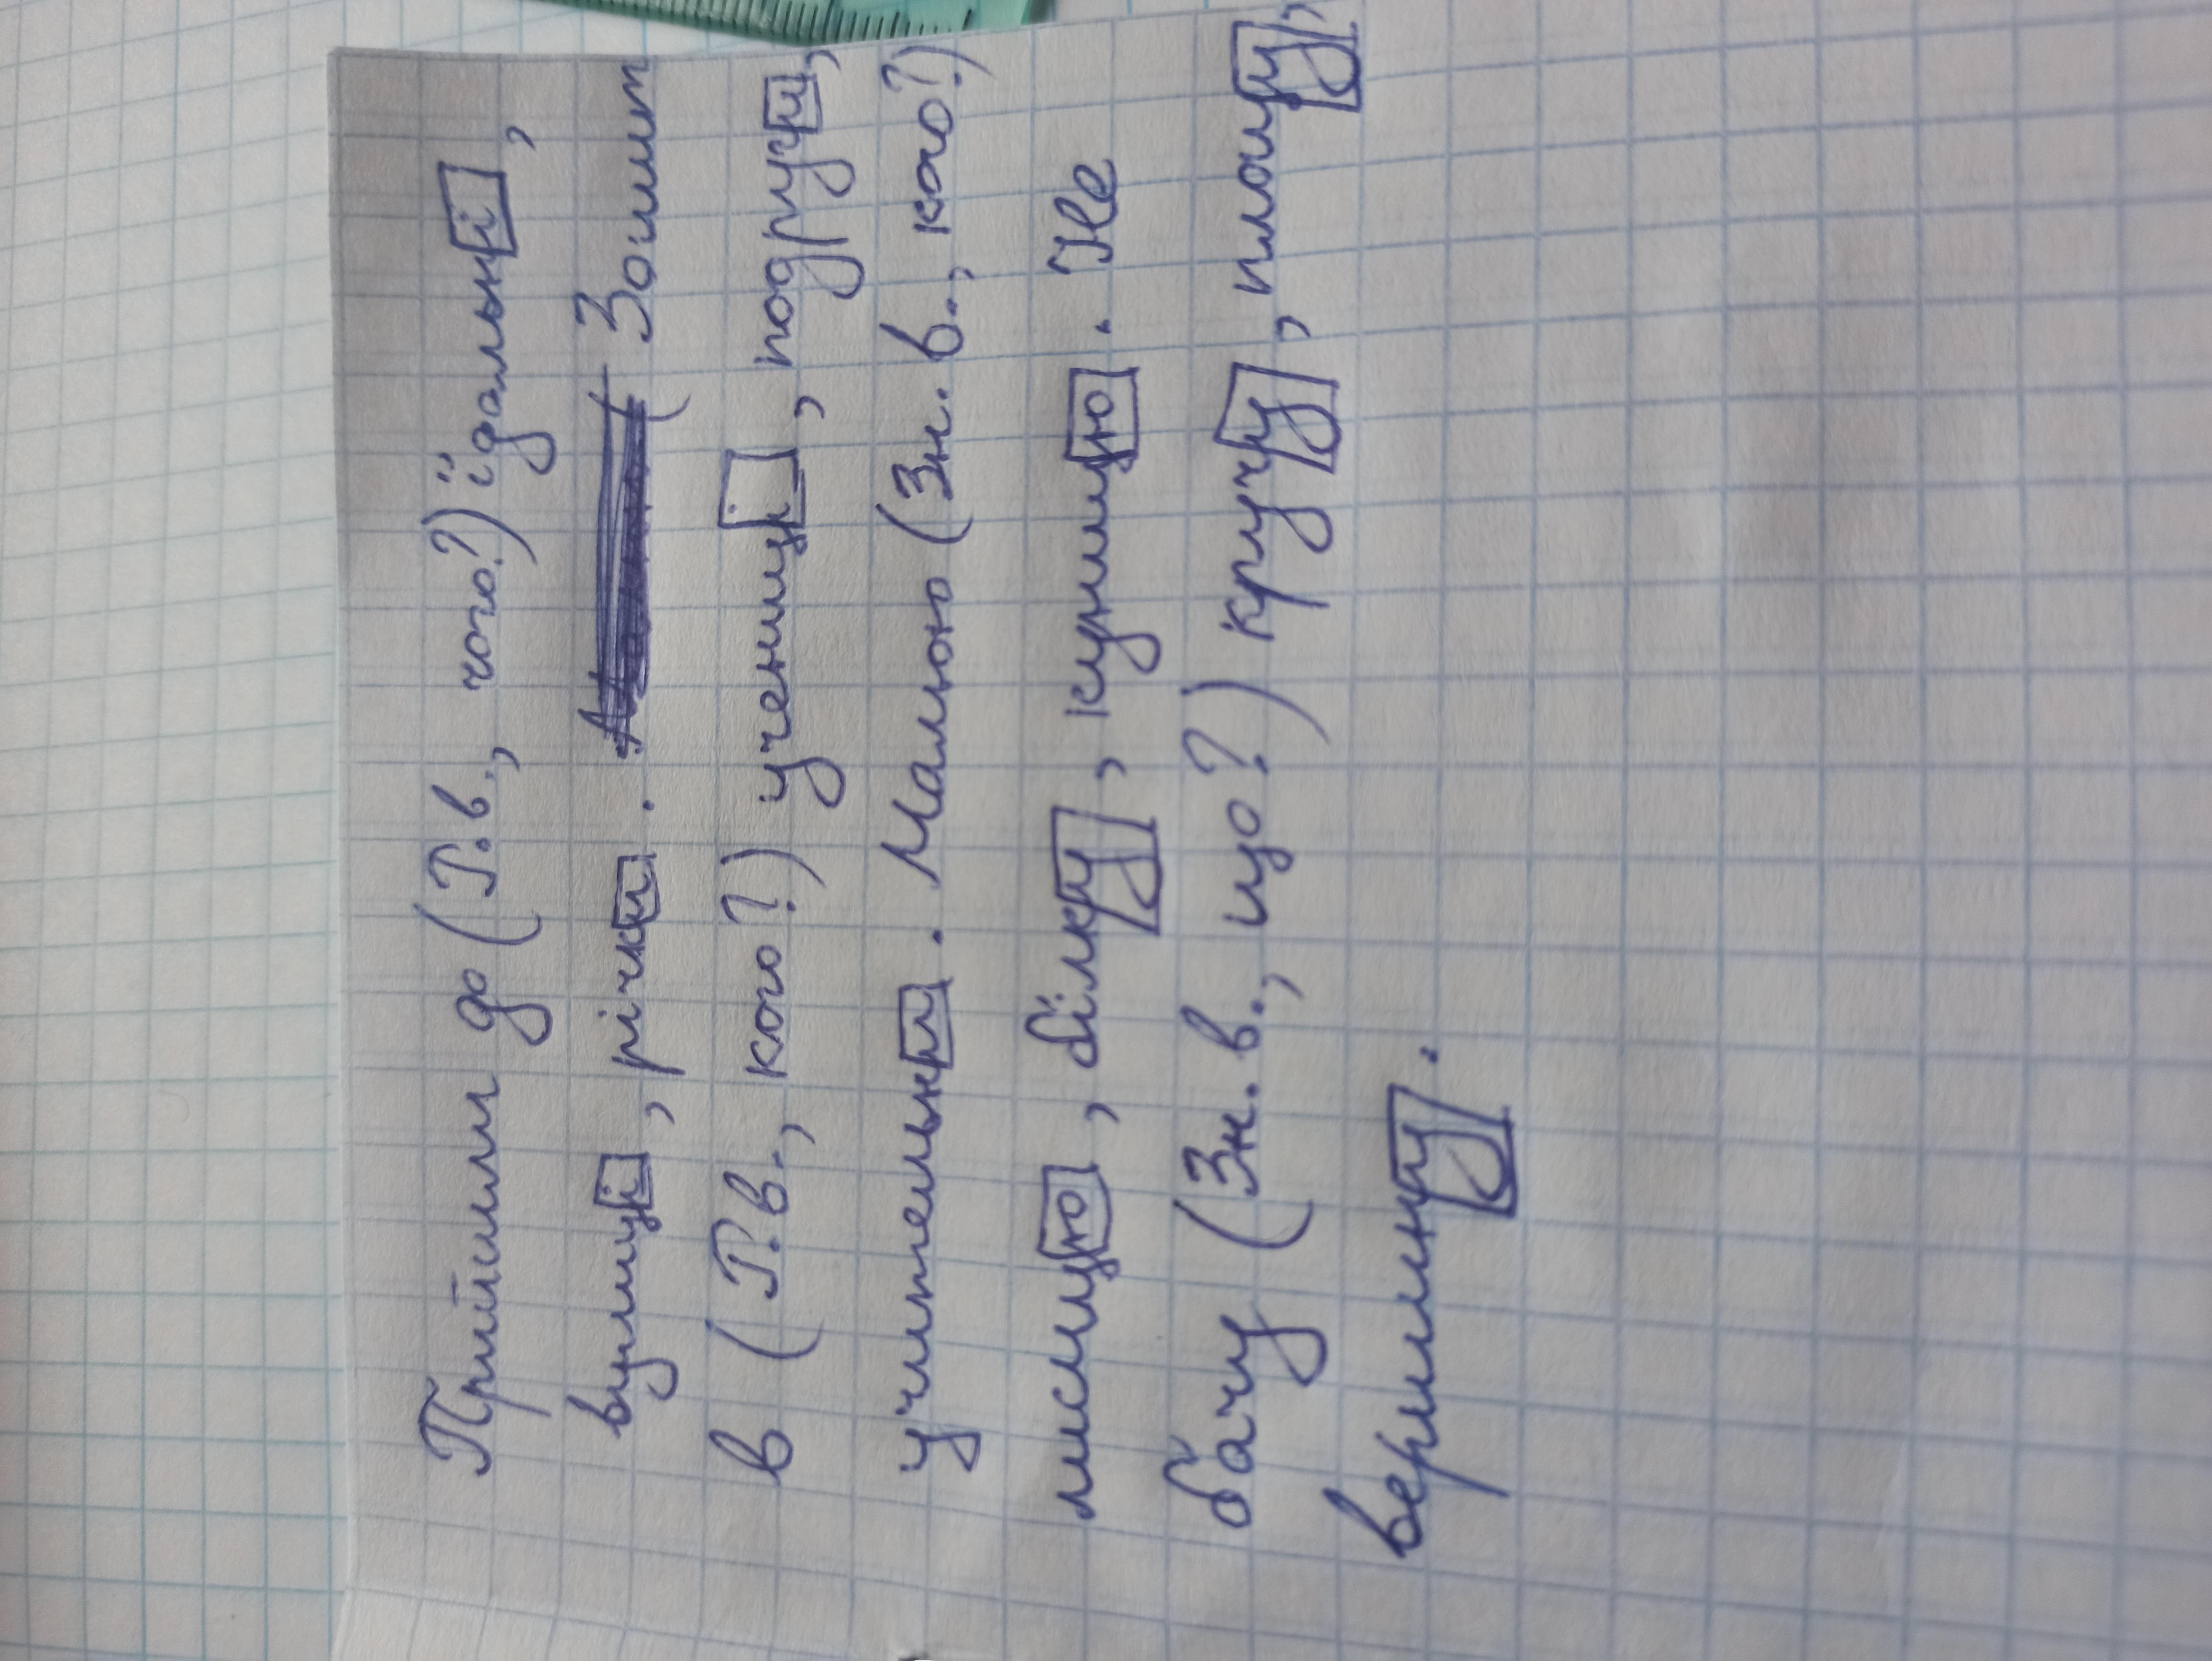 Прийшли до (Р.в., чого?) їдальні,
вулиці, річки. Зошит
в (Р.в., кого?) учениці, подруги,
учительки. Малюю (Зн.в., кого?)
лисицю, білку, куницю. Не
бачу (Зн.в., що?) кручу, площу,
вершину.